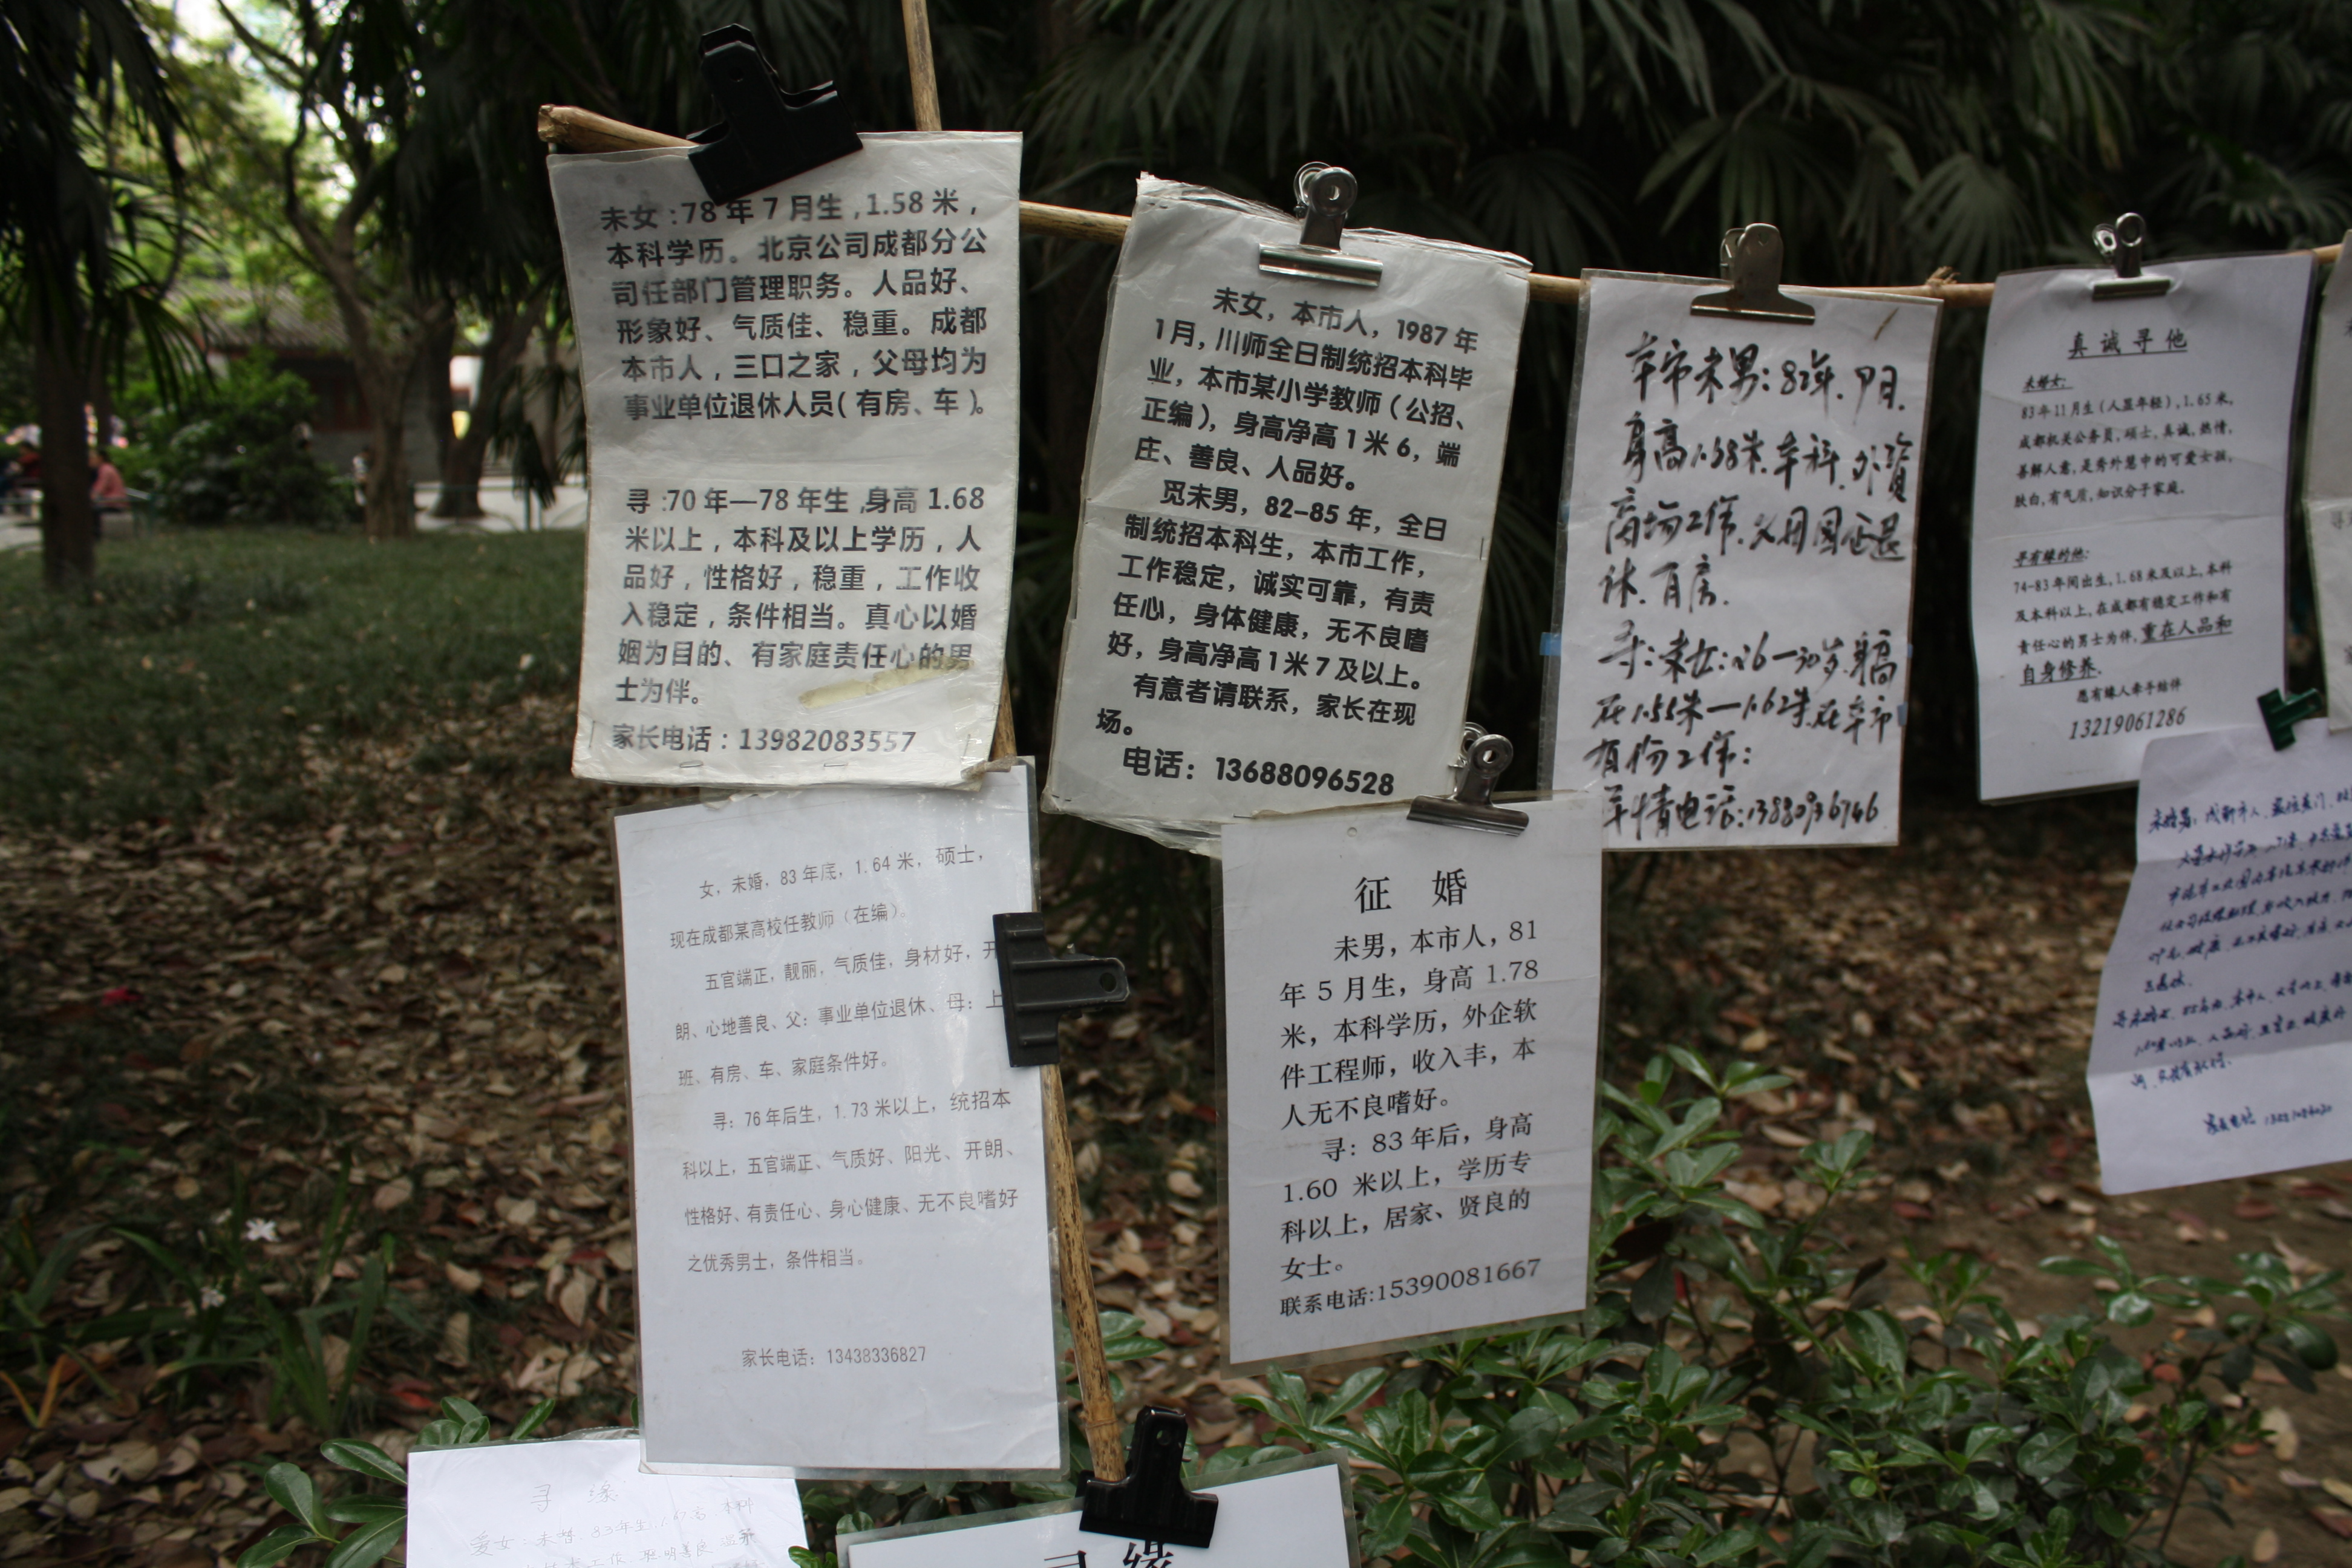 未女:78年7月生,1.58米,
本科学历。北京公司成都分公
司任部门管理职务。人品好、
形象好、气质佳、稳重。成都
本市人,三口之家,父母均为
事业单位退休人员(有房、车)。
寻:70年—78年生,身高1.68
米以上,本科及以上学历,人
品好,性格好,稳重,工作收
入稳定,条件相当。真心以婚
姻为目的、有家庭责任心的男
士为伴。
家长电话:13982083557
未女,本市人,1987年
1月,川师全日制统招本科毕
业,本市某小学教师(公招、
正编),身高净高1米6,端
庄、善良、人品好。
觅未男,82-85年,全日
制统招本科生,本市工作,
工作稳定,诚实可靠,有责
任心,身体健康,无不良嗜
好,身高净高1米7及以上。
有意者请联系,家长在现
场。
电话:13688096528
本市未男:82年.
身高1.68米.本科.外资
商场工作.父母国企退
休.有房.
寻:未女:26—30岁.身高
在1.55米—1.62米.在本市
有份工作:
真诚寻他
未婚女:
83年11月生(人显年轻),1.65米,
成都机关公务员,硕士,真诚,热情,
善解人意,是秀外慧中的可爱女孩,
肤白,有气质,知识分子家庭。
寻有缘的他:
74-83年间出生,1.68米及以上,本科
及本科以上,在成都有稳定工作和有
责任心的男士为伴,重在人品和
自身修养.
愿有缘人牵手结伴
13219061286
女,未婚,83年底,1.64米,硕士,
现在成都某高校任教师(在编)。
五官端正,靓丽,气质佳,身材好,开
朗、心地善良、父:事业单位退休、母:上
班、有房、车、家庭条件好。
寻:76年后生,1.73米以上,统招本
科以上,五官端正、气质好、阳光、开朗、
性格好、有责任心、身心健康、无不良嗜好
之优秀男士,条件相当。
家长电话:13438336827
征 婚
未男,本市人,81
年5月生,身高1.78
米,本科学历,外企软
件工程师,收入丰,本
人无不良嗜好。
寻:83年后,身高
1.60米以上,学历专
科以上,居家、贤良的
女士。
联系电话:15390081667
寻 缘
爱女:未婚.83年生.1.67高.本科
工作.聪明善良
寻缘